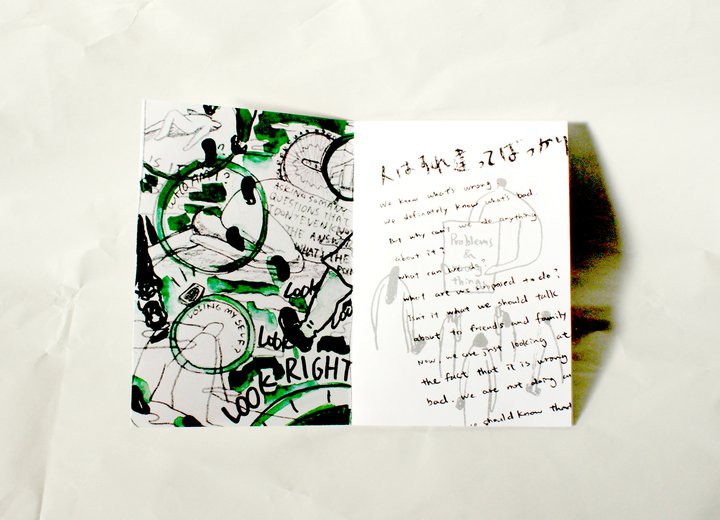 IS I
WHO AM I?
ASKING SO MANY
QUESTIONS THAT
THE
WHAT'S THE
LOOK
LOSING MY SELF?
LOOK
LOOK RIGHT
人はすれ違ってばっかり
We know what's wrong
We definately know what's bad
But why can't we do anything
about it?
what can we do?
what are we supposed to do?
Isn't it what we should talk
about to friends and family
Now, we are just looking at
the fact that it is wrong
bad. we are not doing an
should know that
Problems
&
wrong
things